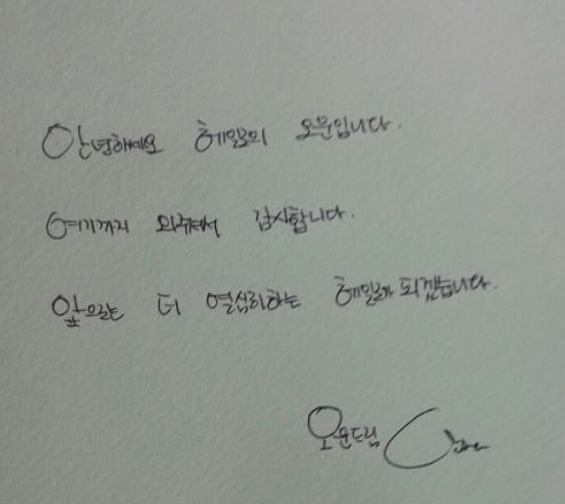 안녕하세요 헤일로의 오운입니다.
여기까지 와줘서 감사합니다.
앞으로는 더 열심히하는 헤일로가 되겠습니다.
오운드림